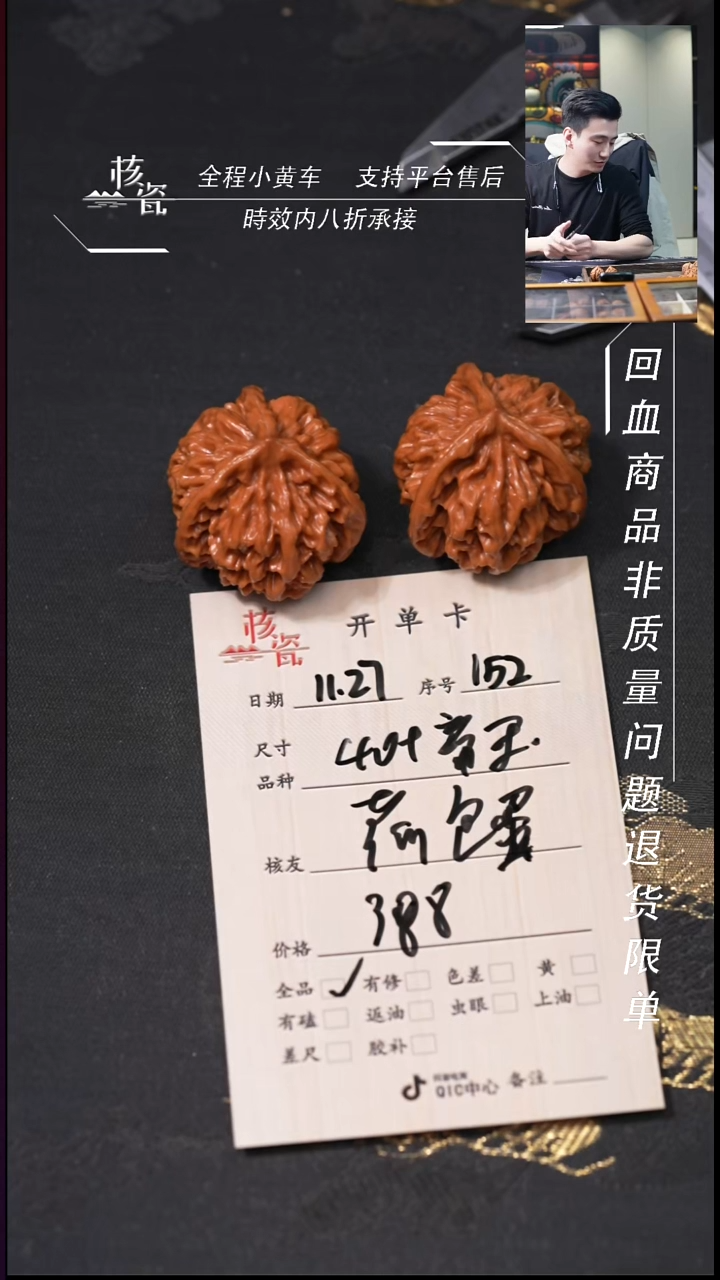 核瓷
全程小黄车 支持平台售后
時效内八折承接
回血商品非质量问题退货限单
核瓷
开单卡
日期 11.27 序号 152
尺寸
品种
核友 荷包蛋
价格 388
全品 有修 色差 黄
有磕 返油 虫眼 上油
差尺 胶补
QIC中心 备注